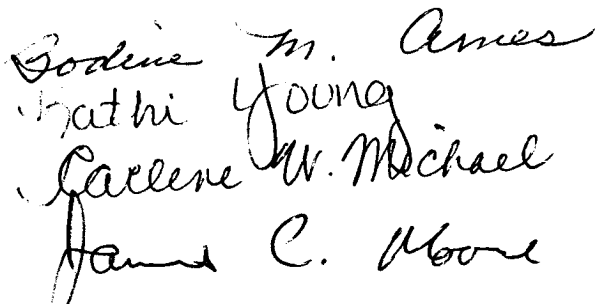 Bodine M. Ames
Kathi Young
Earlene W. Michael
James C. Moore